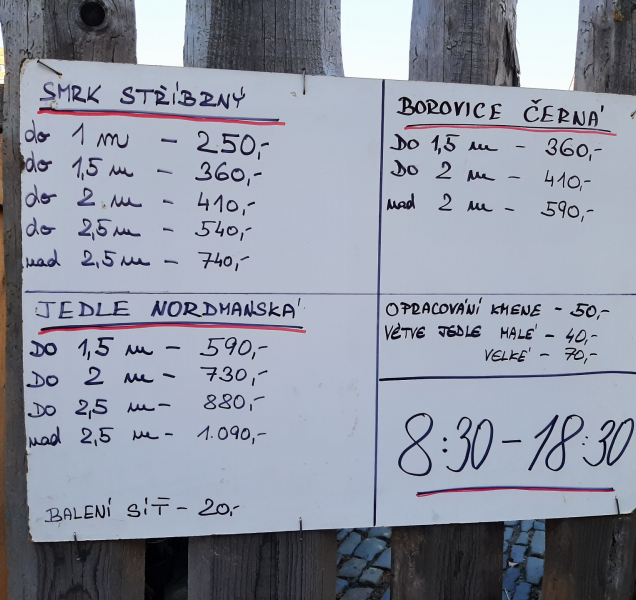 SMRK STŘÍBRNÝ
do 1 m – 250,-
do 1,5 m – 360,-
do 2 m – 410,-
do 2,5 m – 540,-
nad 2,5 m – 740,-
JEDLE NORDMANSKÁ
DO 1,5 m – 590,-
DO 2 m – 730,-
DO 2,5 m – 880,-
nad 2,5 m – 1.090,-
BALENÍ SÍŤ – 20,-
BOROVICE ČERNÁ
DO 1,5 m – 360,-
DO 2 m – 410,-
nad 2 m – 590,-
OPRACOVÁNÍ KMENE – 50,-
VĚTVE JEDLE MALÉ – 40,-
VELKÉ – 70,-
8:30 – 18:30